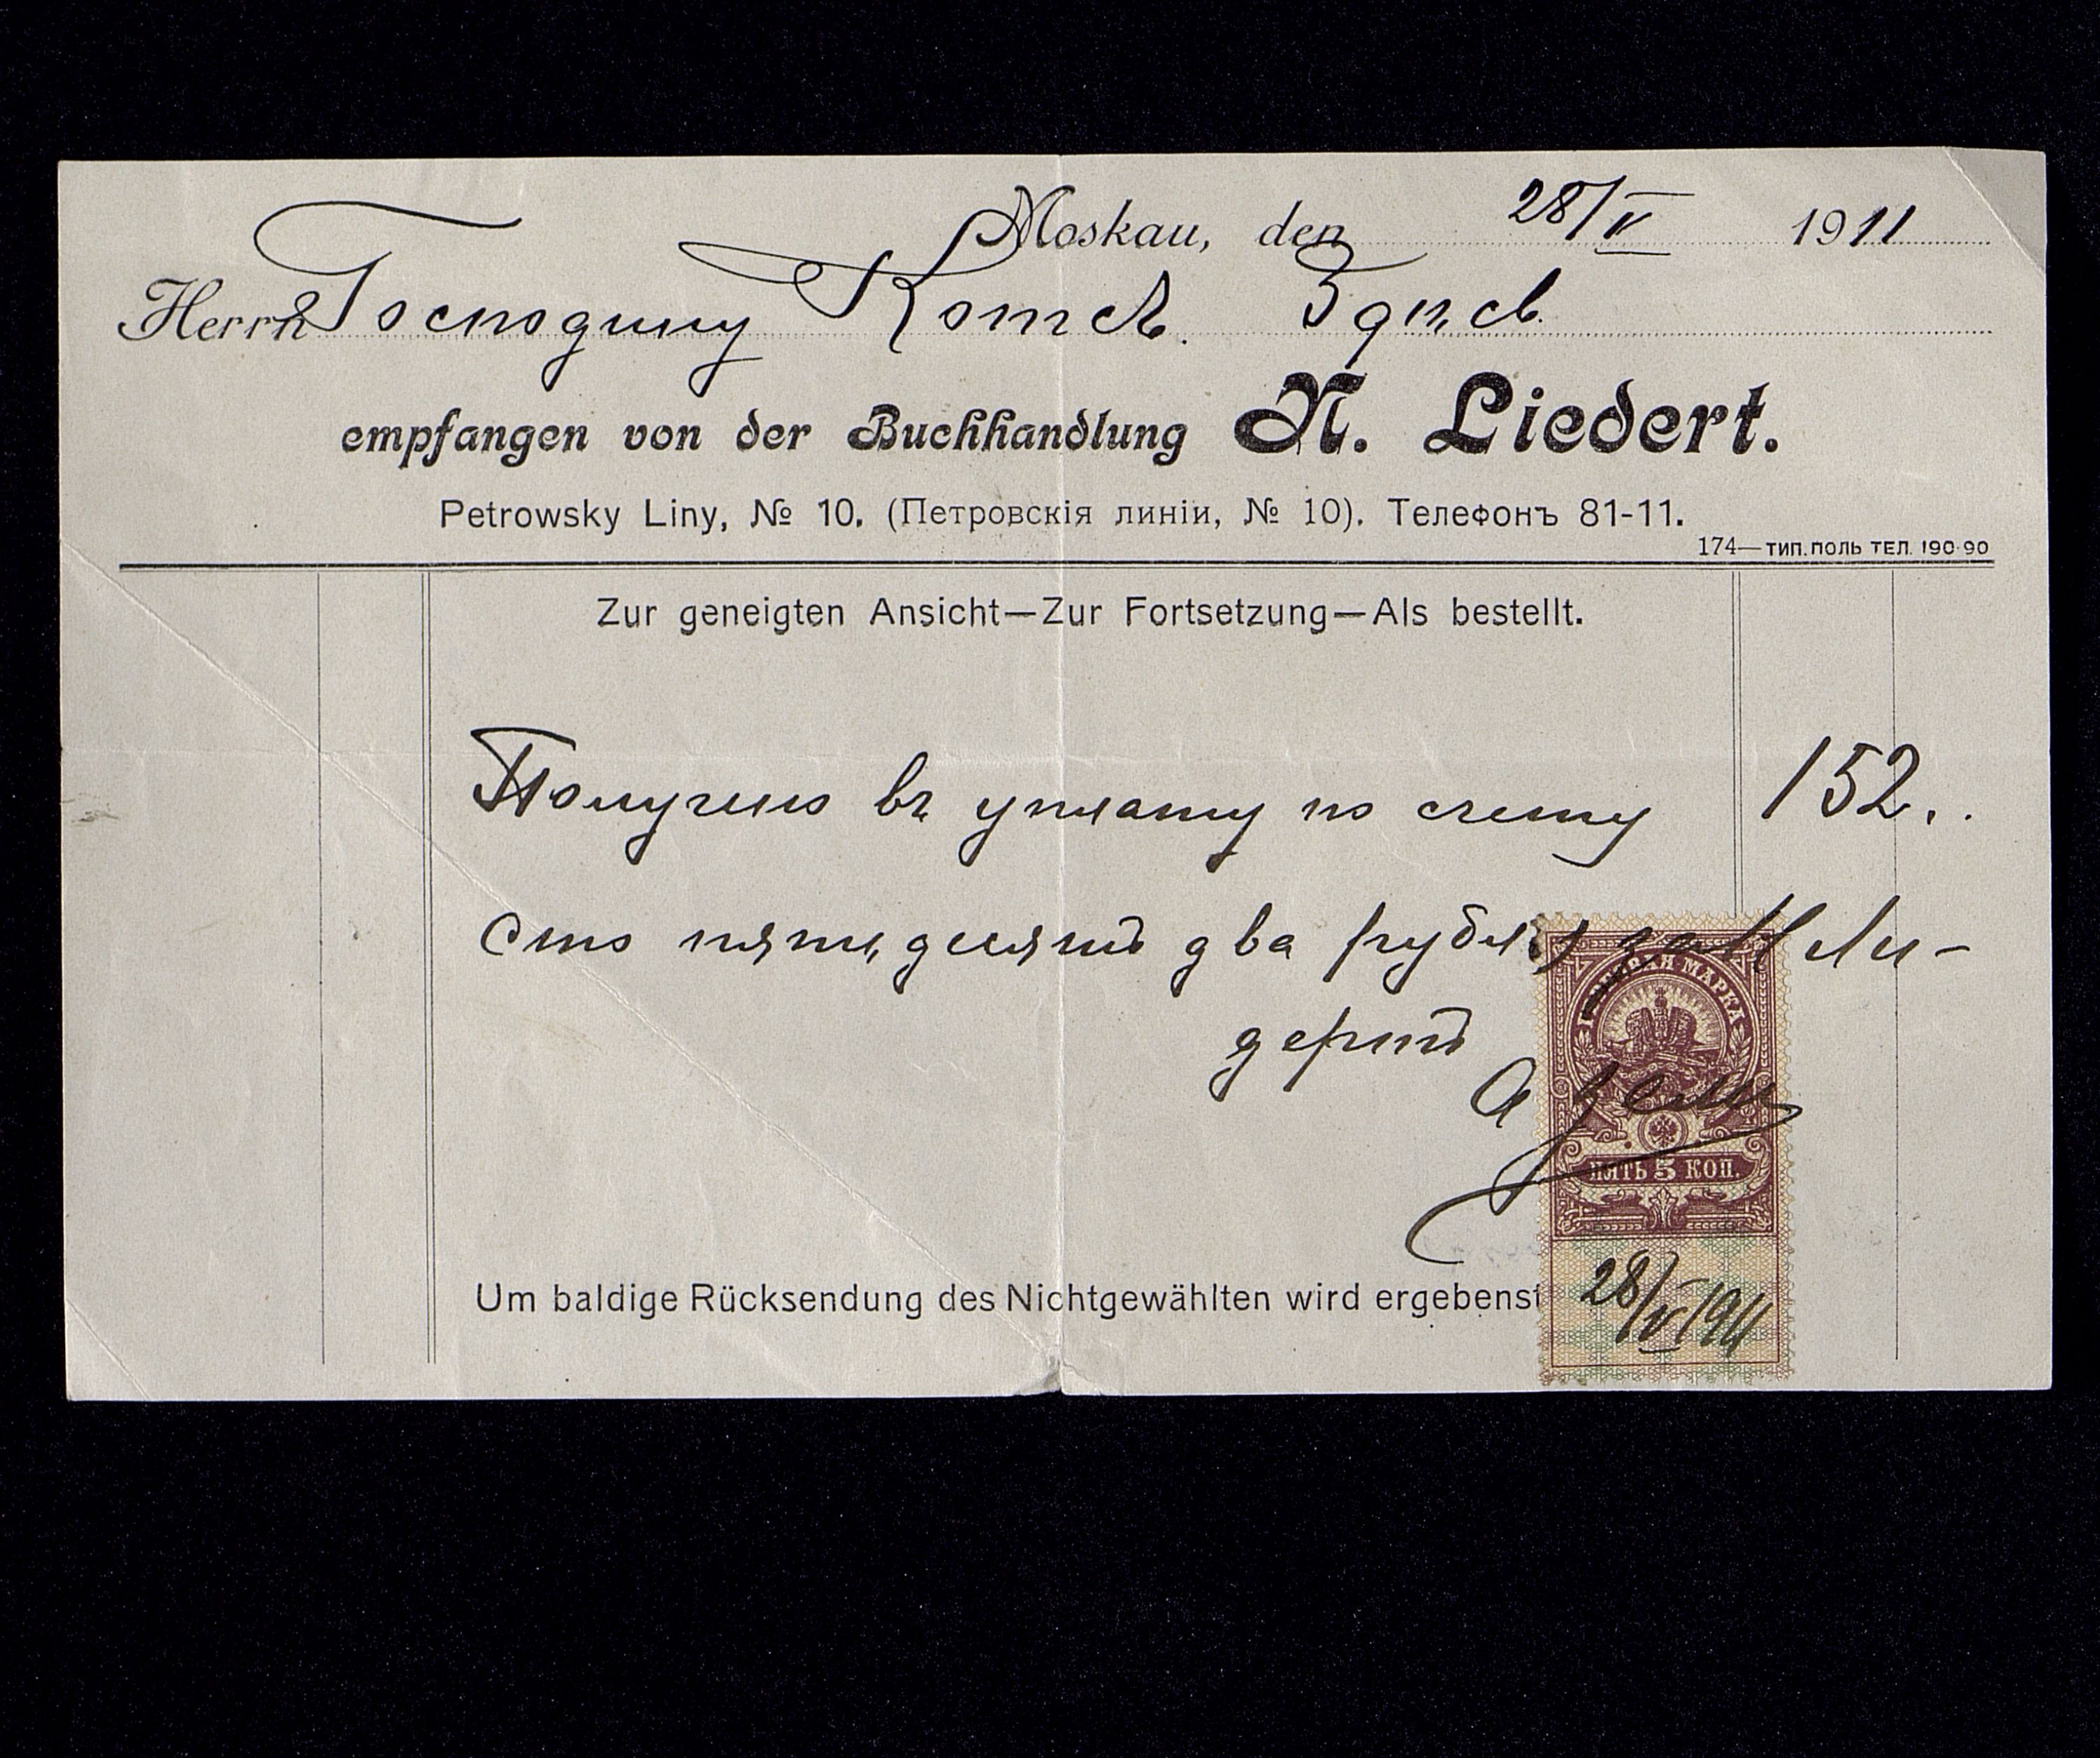 Moskau, den 28/V 1911
Herrn Господину Котсъ. Здѣсь.
empfangen von der Buchhandlung N. Liedert.
Petrowsky Liny, № 10. (Петровскія линіи, № 10). Телефонъ 81-11.
174—ТИП. ПОЛЬ ТЕЛ. 190-90
Zur geneigten Ansicht—Zur Fortsetzung—Als bestellt.
Получено въ уплату по счету 152..
Сто пятьдесятъ два рубля за Н Ли-
дертъ
ГЕРБОВАЯ МАРКА
ПЯТЬ 5 КОП.
Um baldige Rücksendung des Nichtgewählten wird ergebenst
28/V 1911